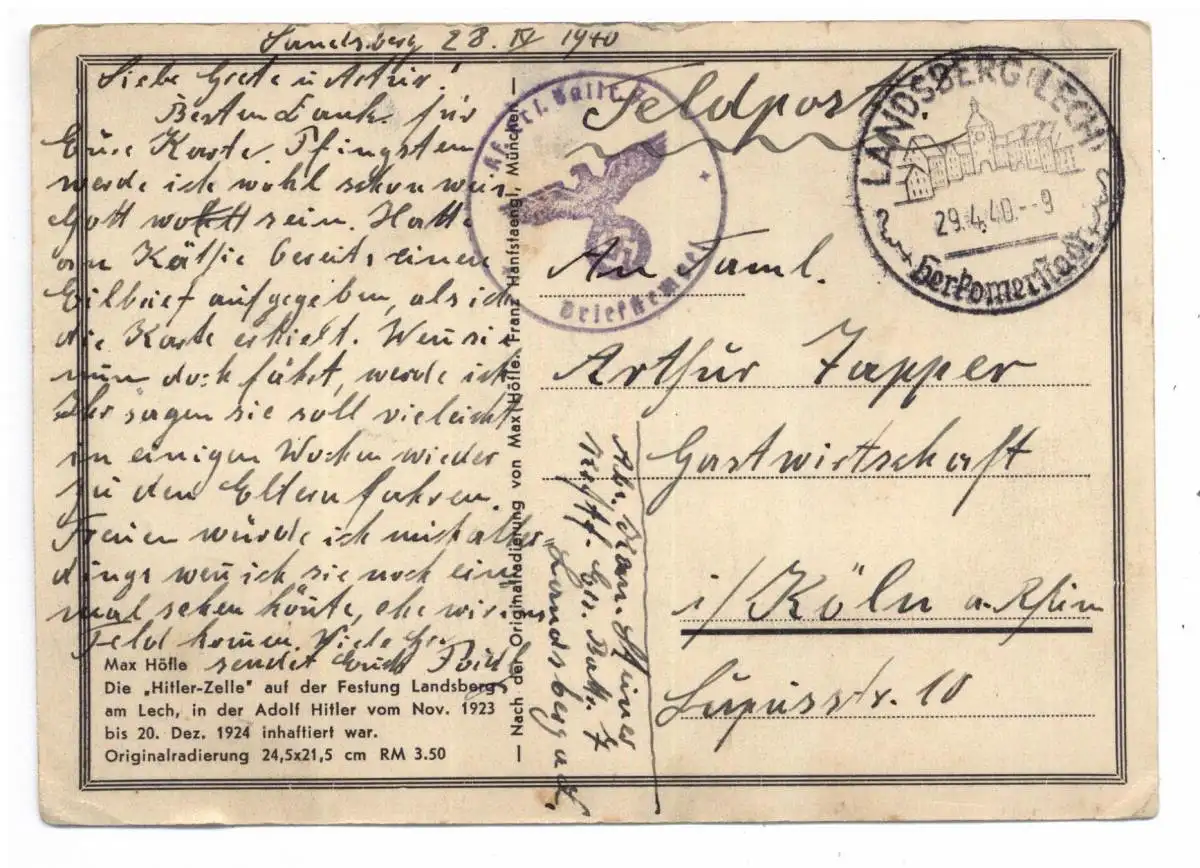 Landsberg 28 IV 1940
Liebe Grete u Artur!
Besten Dank für
Eure Karte. Pfingsten
werde ich wohl schon wer
Gott wo sein. Hatte
an Käthe bereits einen
Eilbrief aufgegeben, als ich
die Karte erhielt. Wenn sie
nun doch fährt, werde ich
Ihr sagen sie soll vieleicht
in einigen Wochen wieder
zu den Eltern fahren.
Freuen würde ich mich aller=
dings wen ich sie noch ein
mal sehen könte, ehe wir ins
Feld komen. Viele Gr.
sendet Euch
Max Höfle
Die „Hitler-Zelle" auf der Festung Landsberg
am Lech, in der Adolf Hitler vom Nov. 1923
bis 20. Dez. 1924 inhaftiert war.
Originalradierung 24,5x21,5 cm RM 3.50
— Nach der Originalradierung von Max Höfle. Franz Hanfstaengl, München —
Batt. 7
Briefstempel
Feldpost
LANDSBERG (LECH)
29.4.40.--9
Herkomerstadt
An Faml.
Arthur Zapper
Gastwirtschaft
i/ Köln a. Rhein
Lupusstr. 10
Abs. Kan. Steiner
Batt. 7
Landsberg a. L.